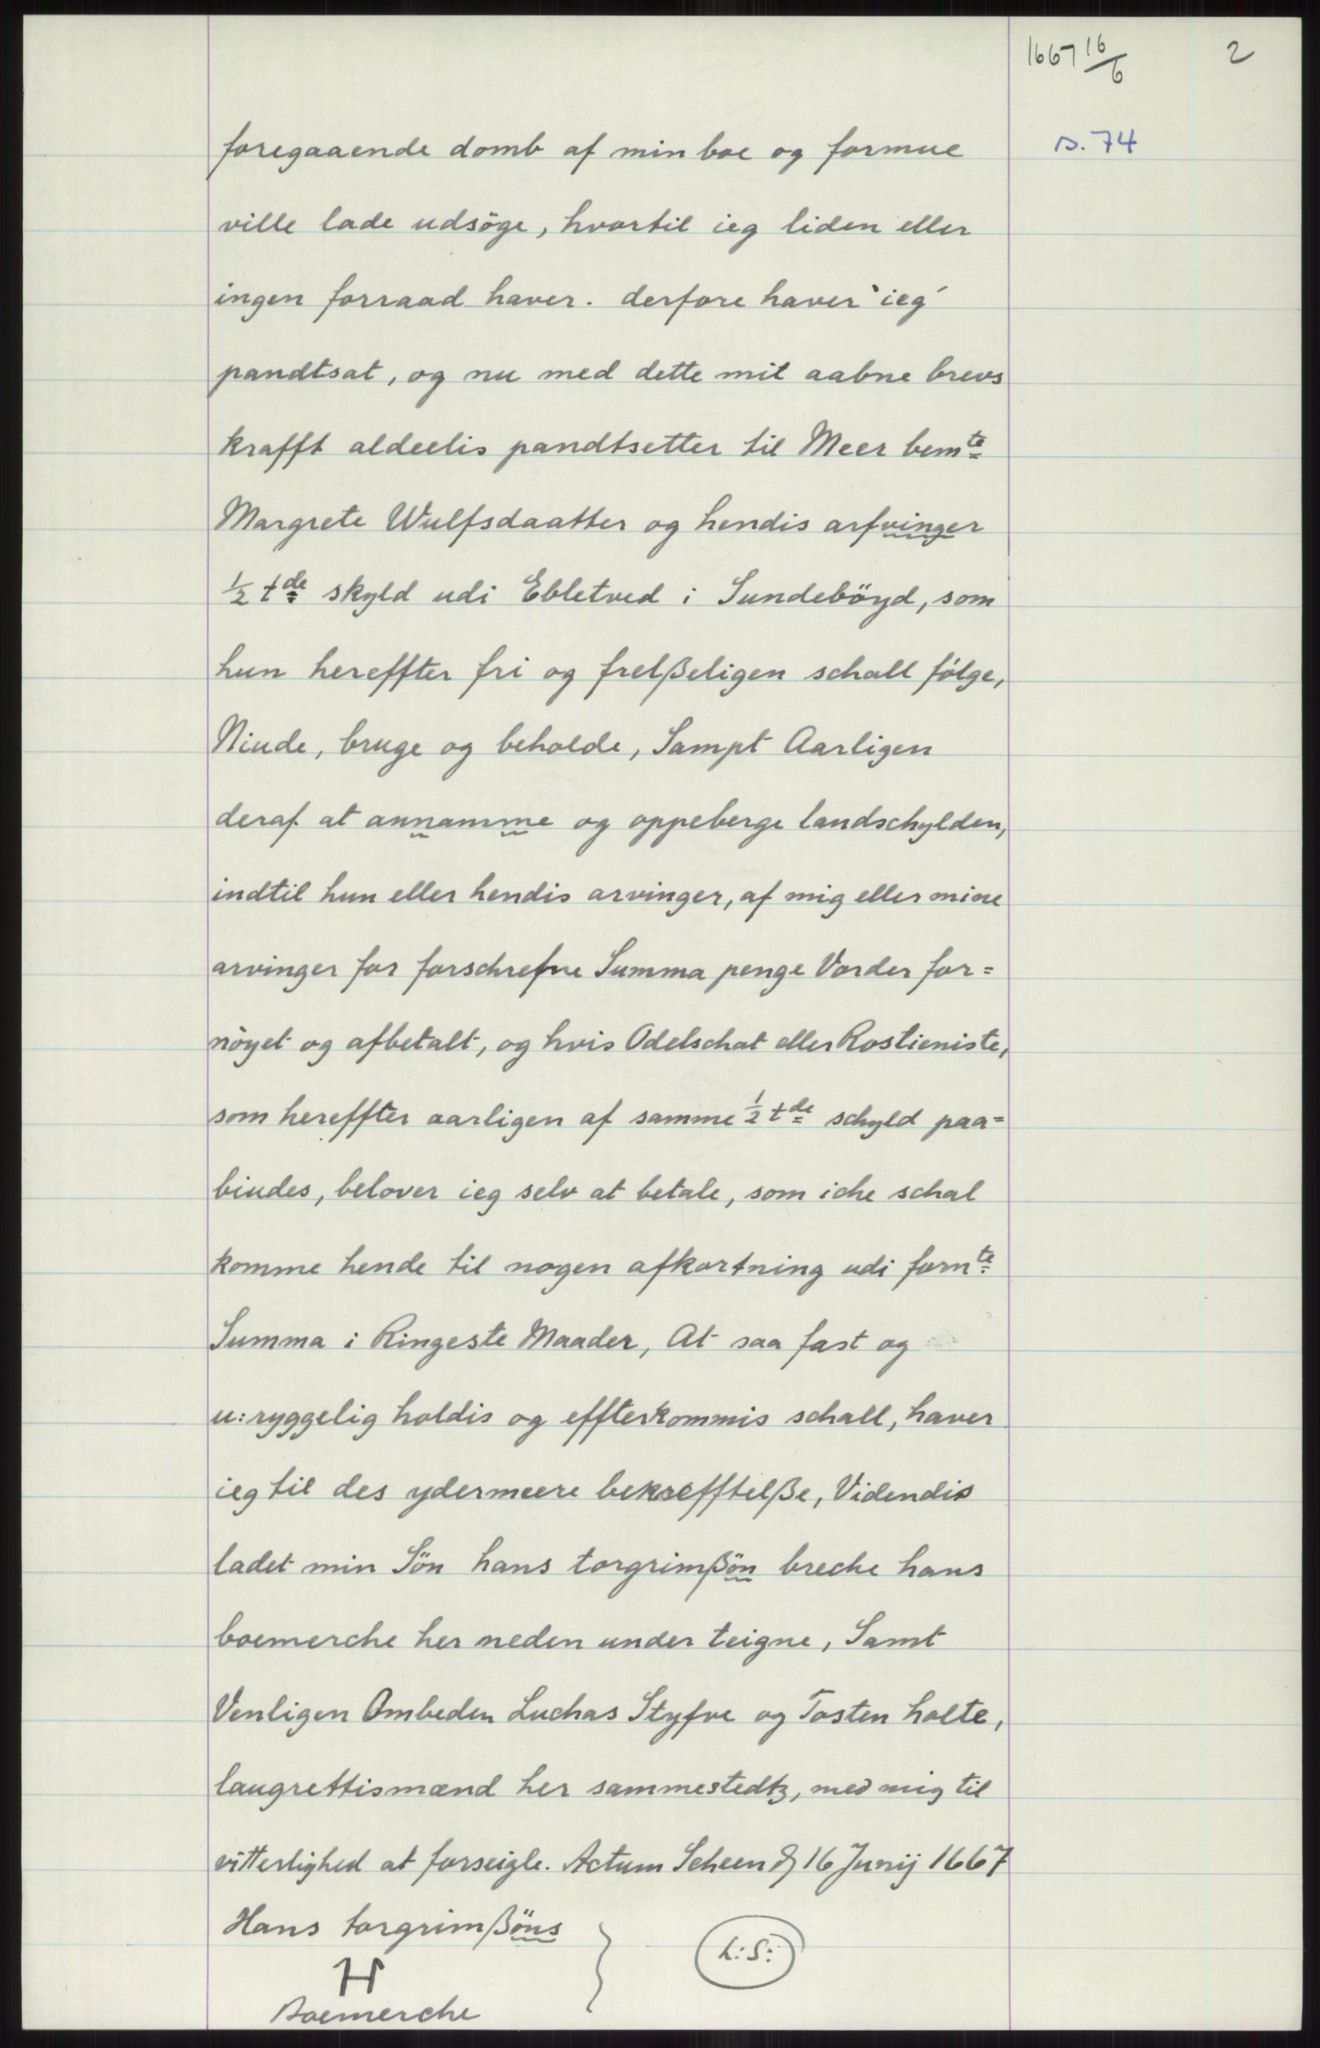 1667 16/6
2
s. 74
foregaaende domb af min boe og formue
ville lade udsöge, hvortil ieg liden eller
ingen forraad haver. derfore haver `ieg´
pandtsat, og nu med dette mit aabne brevs
krafft aldeelis pandtsetter til Meer bemte
Margrete Wulfsdaatter og hendis arfvinger
½ tde skyld udi Ebletved i Sundeböyd, som
hun hereffter fri og frelßeligen schall følge,
Niude, bruge og beholde, Sampt Aarligen
deraf at annamme og oppeberge landschylden,
indtil hun eller hendis arvinger, af mig eller mine
arvinger for forschrefne Summa penge Vorder for=
nöyet og afbetalt, og hvis Odelschat eller Rostieniste,
som hereffter aarligen af samme ½ tde schyld paa=
biudes, belover ieg selv at betale, som iche schal
komme hende til nogen afkortning udi fornte
Summa i Ringeste Maader, At saa fast og
u:ryggelig holdis og effterkommis schall, haver
ieg til des ydermeere bekrefftelße, Videndis
ladet min Sön hans torgrimßön breche hans
boemerche her neden under teigne, Samt
Venligen Ombeden Luchas Styfve og Tosten holte,
laugrettismænd her sammestedtz, med mig til
vitterlighed at forseigle. Actum Scheen d 16 Junij 1667
Hans torgrimßöns
H
Boemerche
L:S: